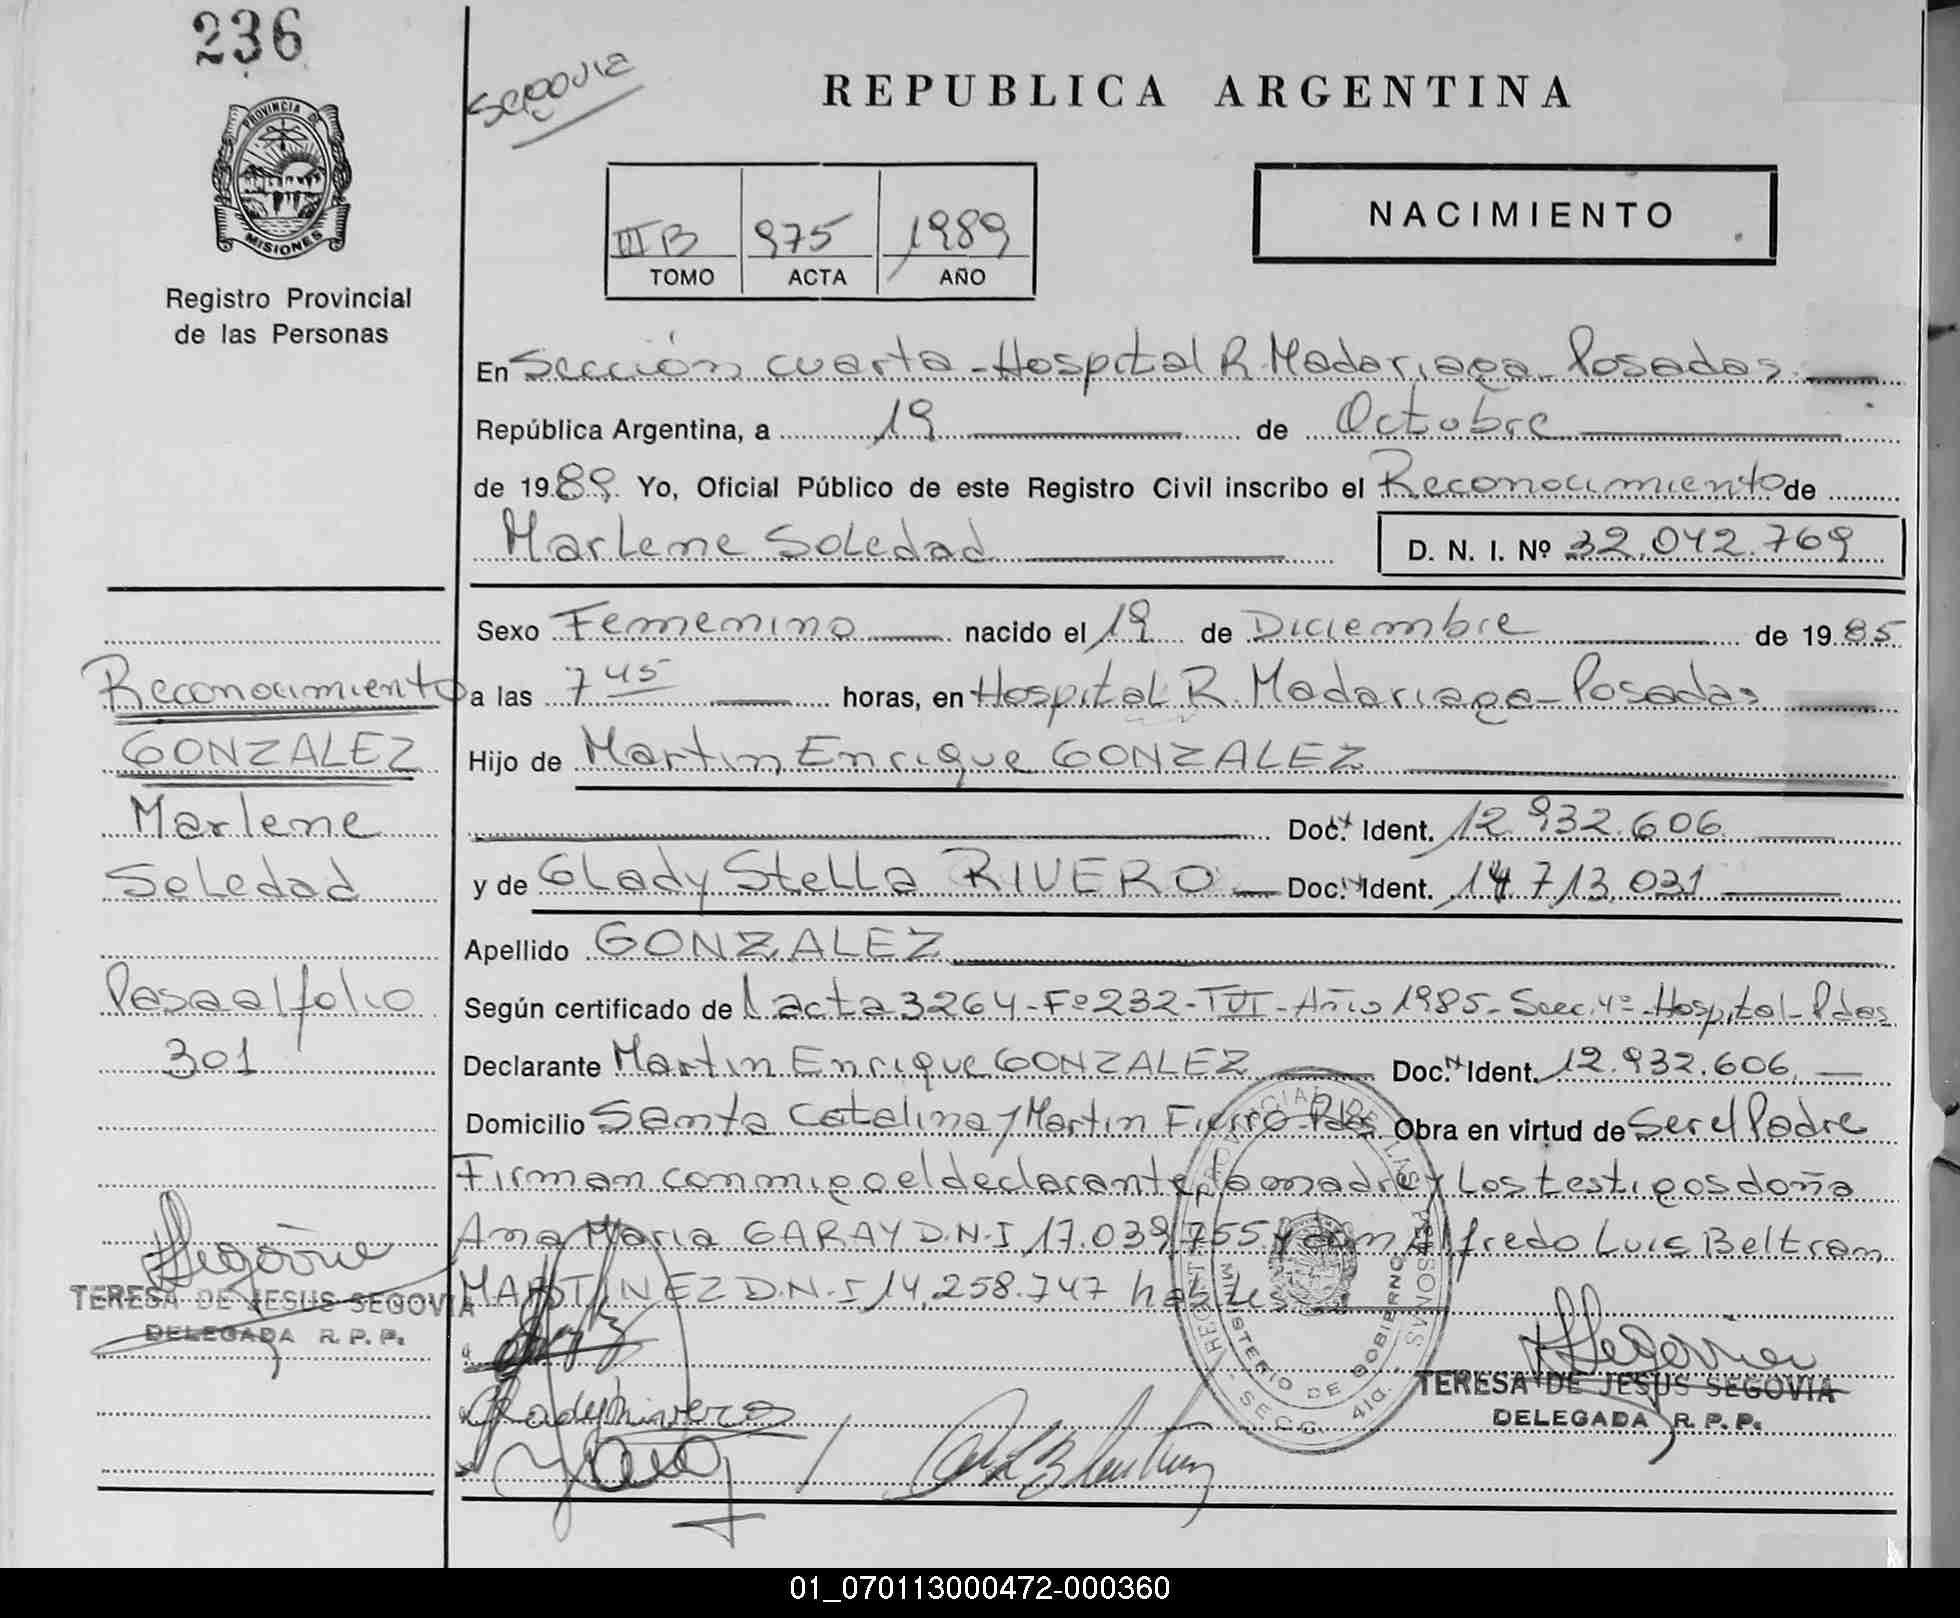 236
Segovia
REPUBLICA ARGENTINA
PROVINCIA DE
MISIONES
Registro Provincial
de las Personas
III B 975 1989
TOMO ACTA AÑO
NACIMIENTO
En Sección cuarta - Hospital R. Madariaga - Posadas
República Argentina, a 19 de Octubre
de 1989. Yo, Oficial Público de este Registro Civil inscribo el Reconocimiento de
Marlene Soledad D. N. I. Nº 32.042.769
Sexo Femenino nacido el 19 de Diciembre de 1985
a las 7 45 horas, en Hospital R. Madariaga - Posadas
Hijo de Martin Enrique GONZALEZ
Doc. Ident. 12.932.606
y de Glady Stella RIVERO Doc. Ident. 14.713.031
Apellido GONZALEZ
Según certificado de l acta 3264 - Fº 232 - T VI - Año 1985 - Secc. 4º - Hospital - Pdas
Declarante Martin Enrique GONZALEZ Doc. Ident. 12.932.606
Domicilio Santa Catalina y Martin Fierro - Pdas Obra en virtud de Ser el Padre
Firman conmigo el declarante, la madre y Los testigos doña
Ana Maria GARAY D.N.I 17.039.755 y don Alfredo Luis Beltran
MARTINEZ D.N.I 14.258.747 habiles
Reconocimiento
GONZALEZ
Marlene
Soledad
Pasa al folio
301
Segovia
TERESA DE JESUS SEGOVIA
DELEGADA R. P. P.
Glady Rivero
REGISTRO PROVINCIAL DE LAS PERSONAS
MINISTERIO DE GOBIERNO
SECC. 4ta.
Segovia
TERESA DE JESUS SEGOVIA
DELEGADA R. P. P.
01_070113000472-000360